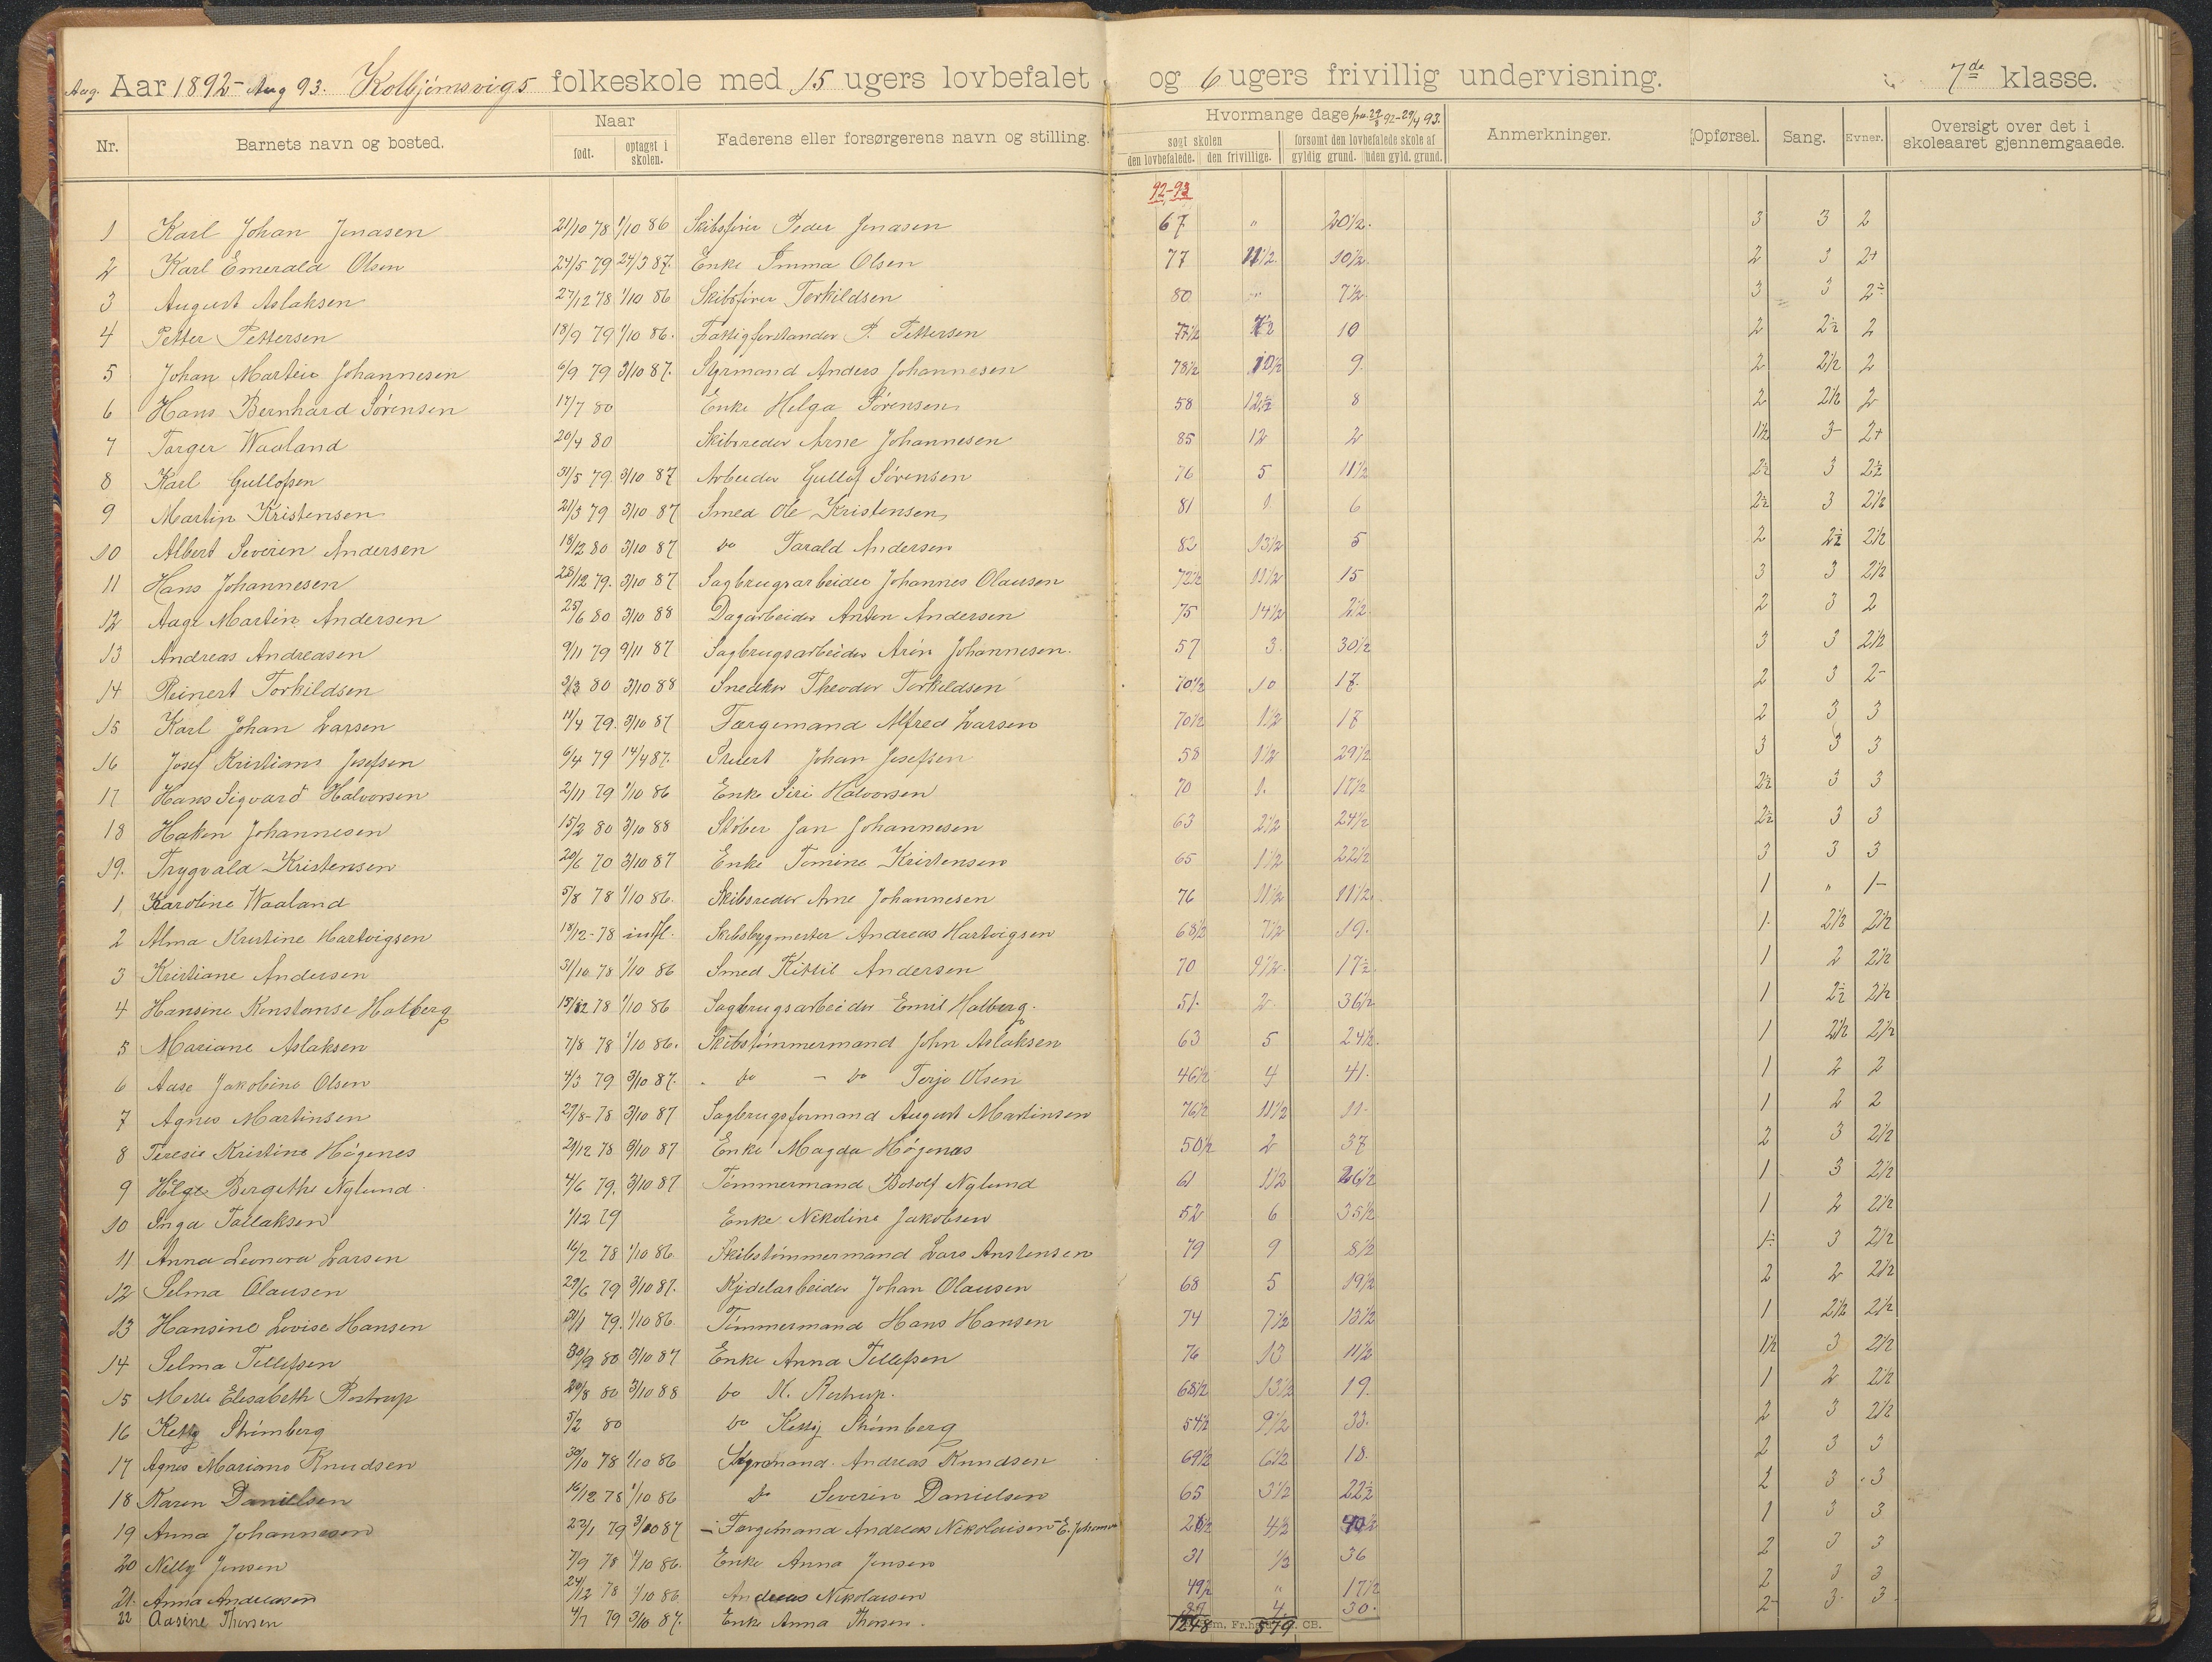 Aug. Aar 1892 - Aug 93. Kolbjørnsvigs folkeskole med 15 ugers lovbefalet og 6 ugers frivillig undervisning. 7de klasse.
Nr. Barnets navn og bosted. Naar født. optaget i skolen. Faderens eller forsørgerens navn og stilling. Hvormange dage fra 22/8 92-29/4 93. søgt skolen den lovbefalede. den frivillige. forsømt den lovbefalede skole af gyldig grund. uden gyld. grund. Anmerkninger. Opførsel. Sang. Evner. Oversigt over det i skoleaaret gjennemgaaede.
92-93
1 Karl Johan Jonasen 21/10 78 1/10 86 Skibsfører Peder Jonasen 67 " 20 1/2. 3 3 2
2 Karl Emerald Olsen 24/5 79 24/3 87. Enke Emma Olsen 77 11 1/2. 10 1/2. 2 3 2+
3 August Aslaksen 27/12 78 1/10 86 Skibsfører Terkildsen 80 " 7 1/2. 3 3 2÷
4 Petter Pettersen 18/9 79 1/10 86. Fattigforstander P. Pettersen 77 1/2 7 1/2 10 2 2 1/2 2
5 Johan Martin Johannesen 6/9 79 3/10 87. Styrmand Anders Johannesen 78 1/2 10 1/2 9. 2 2 1/2 2
6 Hans Bernhard Sørensen 17/7 80 Enke Helga Sørensen 58 12 1/2 8 2 2 1/2 2
7 Torger Waaland 20/4 80 Skibsreder Arne Johannesen 85 12 2 1 1/2 3- 2+
8 Karl Gullofsen 31/5 79. 3/10 87 Arbeider Gullof Sørensen 76 5 11 1/2 2 1/2 3 2 1/2
9 Martin Kristensen 21/3 79 3/10 87 Smed Ole Kristensen 81 1. 6 2 1/2 3 2 1/2
10 Albert Severin Andersen 18/12 80 3/10 87 do Tarald Andersen 82 13 1/2 5 2 2 1/2 2 1/2
11 Hans Johannesen 28/12 79. 3/10 87 Sagbrugsarbeider Johannes Olausen 72 1/2 11 1/2 15 3 3 2 1/2
12 Aage Martin Andersen 25/6 80 3/10 88 Dagarbeider Anton Andersen 75 14 1/2 2 1/2. 2 3 2
13 Andreas Andreasen 9/11 79 9/11 87 Sagbrugsarbeider Arön Johannesen. 57 3. 30 1/2 3 3 2 1/2
14 Reinert Torkildsen 3/3 80 3/10 88 Snedker Theodor Torkildsen 70 1/2 10 17. 2 3 2-
15 Karl Johan Larsen 11/4 79. 3/10 87 Færgemand Alfred Larsen 70 1/2 1 1/2 17 2 3 3
16 Josef Kristians Josefsen 6/4 79 14/4 87. Johan Josefsen 58 1 1/2 29 1/2 3 3 3
17 Hans Sigvard Halvorsen 2/11 79 1/10 86 Enke Siri Halvorsen 70 1. 17 1/2 2 1/2 3 3
18 Hakon Johannesen 15/2 80 3/10 88 Støber Jan Johannesen 63 2 1/2 24 1/2 2 1/2 3 3
19. Trygvald Kristensen 20/6 70 3/10 87 Enke Tomine Kristensen 65 1 1/2 22 1/2 3 3 3
1 Karoline Waaland 5/8 78 1/10 86. Skibsreder Arne Johannesen 76 11 1/2 11 1/2. 1 " 1-
2 Alma Kristine Hartvigsen 18/12-78 indfl. Skibsbygmester Andreas Hartvigsen 68 1/2 7 1/2 19. 1. 2 1/2 2 1/2
3 Kristiane Andersen 31/10 78 1/10 86 Smed Kittil Andersen 70 9 1/2. 17 1/2. 1 2 2 1/2
4 Hansine Konstanse Hatberg 15/12 78 1/10 86 Sagbrugsarbeider Emil Hatberg. 51. 2 36 1/2 1 2 1/2 2 1/2
5 Mariane Aslaksen 7/8 78 1/10 86. Skibstømmermand John Aslaksen 63 5 24 1/2. 1 2 1/2 2 1/2
6 Aase Jakobine Olsen 4/3 79 3/10 87. do - do Terje Olsen 46 1/2 4 41. 1 2 2
7 Agnes Martinsen 27/8-78 3/10 87 Sagbrugsformand August Martinsen 76 1/2 11 1/2 11. 1 2 2
8 Teresie Kristine Høgenes 21/12 78 9/10 87 Enke Magda Høgenæs 50 1/2 2 37 2 3 2 1/2
9 Helge Bergithe Nylund 4/6 79. 3/10 87 Tømmermand Botolf Nylund 61 1 1/2 26 1/2 1 3 2 1/2
10 Inga Tallaksen 1/12 79 Enke Nikoline Jakobsen 52 6 35 1/2 1 2 2 1/2
11 Anna Leonora Larsen 16/2 78 1/10 86 Skibstømmermand Lars Anstensen 79 9 8 1/2 1÷ 3 2 1/2
12 Selma Olausen 29/6 79 3/10 87. Kjedelarbeider Johan Olausen 68 5 19 1/2 2 2 2 1/2
13 Hansine Lovise Hansen 31/1 79. 1/10 86. Tømmermand Hans Hansen 74 7 1/2 13 1/2 1 2 1/2 2 1/2
14 Selma Tellefsen 30/9 80 3/10 87 Enke Anna Tellefsen 76 13 11 1/2 1 1/2 3 2 1/2
15 Elisabeth Rostrup 20/8 80 3/10 88 do M. Rostrup. 68 1/2 13 1/2 19. 1 2 2 1/2
16 Ketty Strømberg 5/2 80 do Ketty Strømberg 54 1/2 9 1/2 33. 2 3 2 1/2
17 Agnes Mariane Knudsen 30/10 78 1/10 86 Styrmand Andreas Knudsen 69 1/2 6 1/2 18. 2 3 3
18 Karen Danielsen 16/12 78 1/10 86 do Severin Danielsen 65 3 1/2 22 1/2 2 3 3
19 Anna Johannesen 22/1 79 3/10 87 Færgemand Andreas Nikolaisen 26 1/2 4 1/2 40 1/2 1 3 3
20 Nelly Jensen 7/9 78 1/10 86. Enke Anna Jensen 31 1/2 36 2 3 3
21. Anna Andreasen 24/12 78 1/10 86 Andreas Nikolaisen 49 1/2 " 17 1/2 2 3 3
22 Aasine Thorsen 4/7 79 3/10 87. Enke Anna Thorsen. 4. 30. 2- 3. 3.
1248 579 CB.